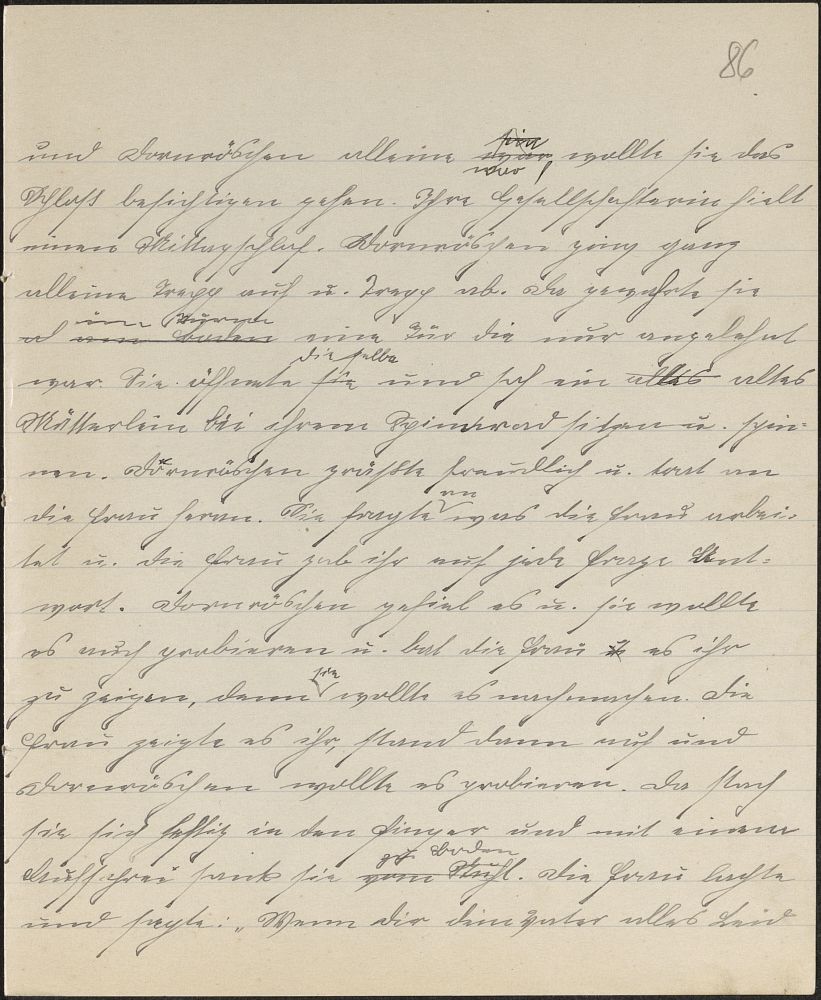 86
und Dornröschen alleine war, wollte sie das
Schloß besichtigen gehen. Ihre Gesellschafterin hielt
einen Mittagschlaf. Dornröschen ging ganz
alleine Trepp auf u. Trepp ab. Da gewahrte sie
im Turme
am Boden eine Tür die nur angelehnt
dieselbe
war. Sie öffnete sie und sah ein altes altes
Mütterlein bei ihrem Spinnrad sitzen u. spin-
nen. Dornröschen grüßte freundlich u. trat an
die Frau heran. Sie fragte was die Frau arbei-
tet u. die Frau gab ihr auf jede Frage Ant-
wort. Dornröschen gefiel es u. sie wollte
es auch probieren u. bat die Frau es ihr
sie
zu zeigen, denn wollte es nachmachen. Die
Frau zeigte es ihr, stand dann auf und
Dornröschen wollte es probieren. Da stach
sie sich heftig in den Finger und mit einem
zu Boden
Aufschrei sank sie vom Stuhl. Die Frau lachte
und sagte: „Wenn dir dein Vater alles Leid